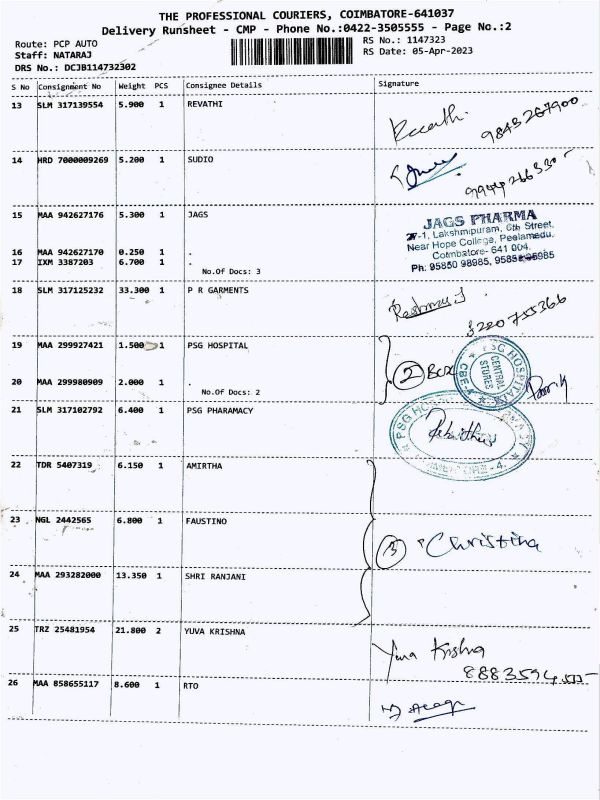 THE PROFESSIONAL COURIERS, COIMBATORE-641037
Delivery Runsheet - CMP - Phone No.:0422-3505555 - Page No.:2
Route: PCP AUTO
Staff: NATARAJ
DRS No.: DCJB114732302
RS No.: 1147323
RS Date: 05-Apr-2023
S No Consignment No Weight PCS Consignee Details Signature
13 SLM 317139554 5.900 1 REVATHI
9843267900
14 HRD 7000009269 5.200 1 SUDIO
15 MAA 942627176 5.300 1 JAGS
JAGS PHARMA
Lakshmipuram, 6th Street,
Near Hope College, Peelamedu,
Coimbatore- 641 004.
Ph: 95850 98985,
16 MAA 942627170 0.250 1 .
17 IXM 3387203 6.700 1 .
No.Of Docs: 3
18 SLM 317125232 33.300 1 P R GARMENTS
19 MAA 299927421 1.500 1 PSG HOSPITAL
2 Box
PSG HOSPITALS
CENTRAL STORES
CBE-4
20 MAA 299980909 2.000 1 .
No.Of Docs: 2
21 SLM 317102792 6.400 1 PSG PHARAMACY
22 TDR 5407319 6.150 1 AMIRTHA
23 NGL 2442565 6.800 1 FAUSTINO
3 Christina
24 MAA 293282000 13.350 1 SHRI RANJANI
25 TRZ 25481954 21.800 2 YUVA KRISHNA
Yuva Krishna
26 MAA 858655117 8.600 1 RTO